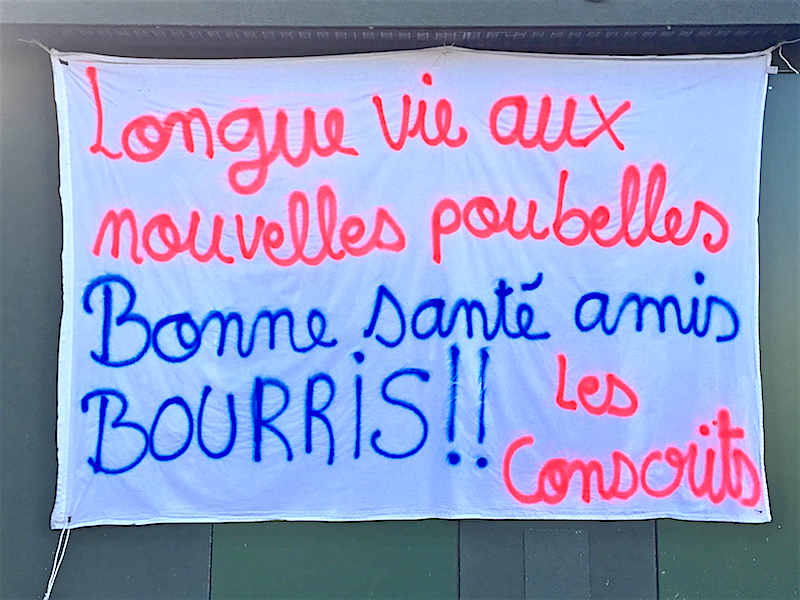 Longue vie aux
nouvelles poubelles
Bonne santé amis
BOURRIS!!
Les
Conscrits